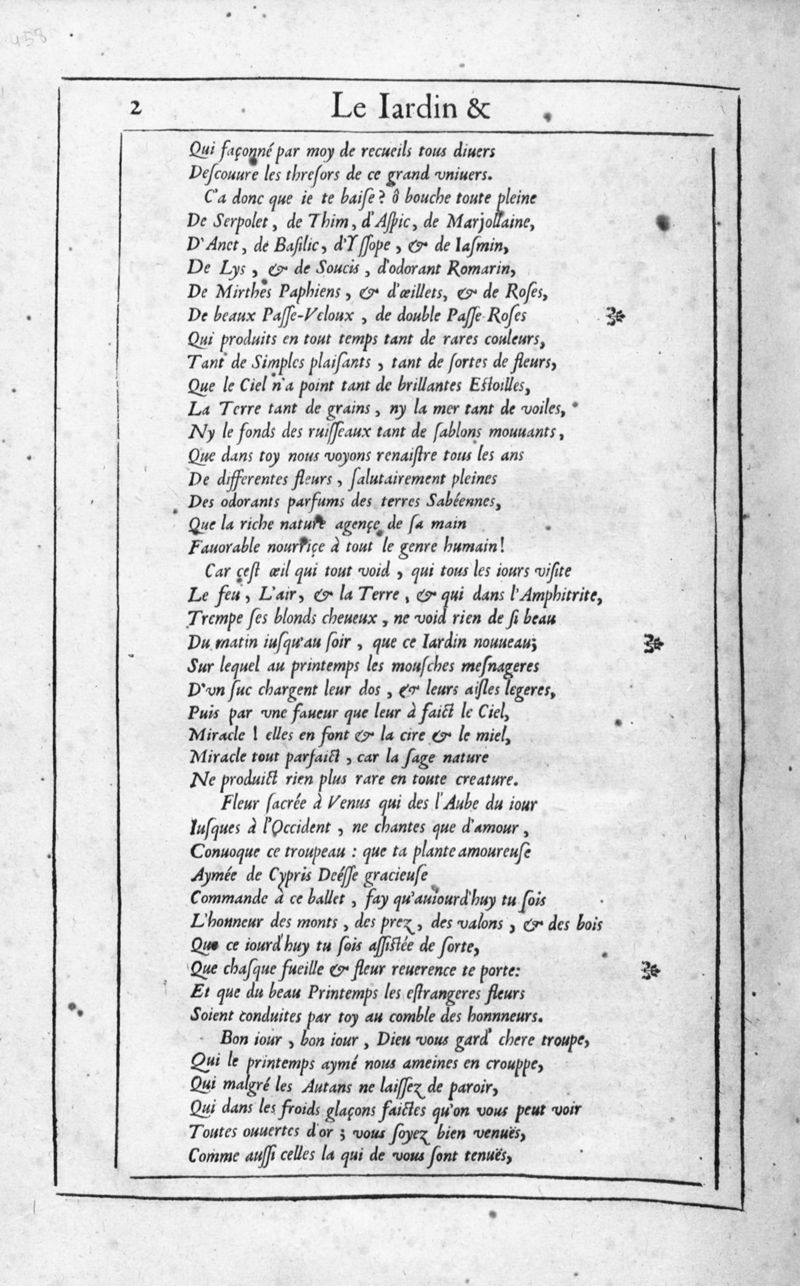 458
2
Le Iardin &
Qui façonné par moy de recueils tous diuers
Deſcouure les threſors de ce grand vniuers.
C'a donc que ie te baiſe? ô bouche toute pleine
De Serpolet, de Thim, d'Aſpic, de Marjollaine,
D'Anet, de Baſilic, d'Yſſope, & de Iaſmin,
De Lys, & de Soucis, d'odorant Romarin,
De Mirthes Paphiens, & d'œillets, & de Roſes,
De beaux Paſſe-Veloux, de double Paſſe-Roſes
Qui produits en tout temps tant de rares couleurs,
Tant de Simples plaiſants, tant de ſortes de fleurs,
Que le Ciel n'a point tant de brillantes Eſtoilles,
La Terre tant de grains, ny la mer tant de voiles,
Ny le fonds des ruiſſeaux tant de ſablons mouuants,
Que dans toy nous voyons renaiſtre tous les ans
De differentes fleurs, ſalutairement pleines
Des odorants parfums des terres Sabéennes,
Que la riche nature agençe de ſa main
Fauorable nourriçe à tout le genre humain!
Car çeſt œil qui tout void, qui tous les iours viſite
Le feu, L'air, & la Terre, & qui dans l'Amphitrite,
Trempe ſes blonds cheueux, ne void rien de ſi beau
Du matin iuſqu'au ſoir, que ce Iardin nouueau;
Sur lequel au printemps les mouſches meſnageres
D'vn ſuc chargent leur dos, & leurs aiſles legeres,
Puis par vne faueur que leur à faict le Ciel,
Miracle! elles en font & la cire & le miel,
Miracle tout parfaict, car la ſage nature
Ne produict rien plus rare en toute creature.
Fleur ſacrée à Venus qui des l'Aube du iour
Iuſques à l'Occident, ne chantes que d'amour,
Conuoque ce troupeau: que ta plante amoureuſe
Aymée de Cypris Deéſſe gracieuſe
Commande à ce ballet, fay qu'auiourd'huy tu ſois
L'honneur des monts, des prez, des valons, & des bois
Que ce iourd'huy tu ſois aſſiſtée de ſorte,
Que chaſque fueille & fleur reuerence te porte:
Et que du beau Printemps les eſtrangeres fleurs
Soient conduites par toy au comble des honnneurs.
Bon iour, bon iour, Dieu vous gard' chere troupe,
Qui le printemps aymé nous ameines en crouppe,
Qui malgré les Autans ne laiſſez de paroir,
Qui dans les froids glaçons faictes qu'on vous peut voir
Toutes ouuertes d'or; vous ſoyez bien venuës,
Comme auſſi celles la qui de vous ſont tenuës,